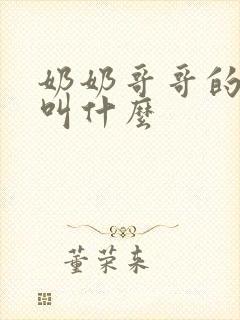 奶奶哥哥的
叫什麼
董荣来